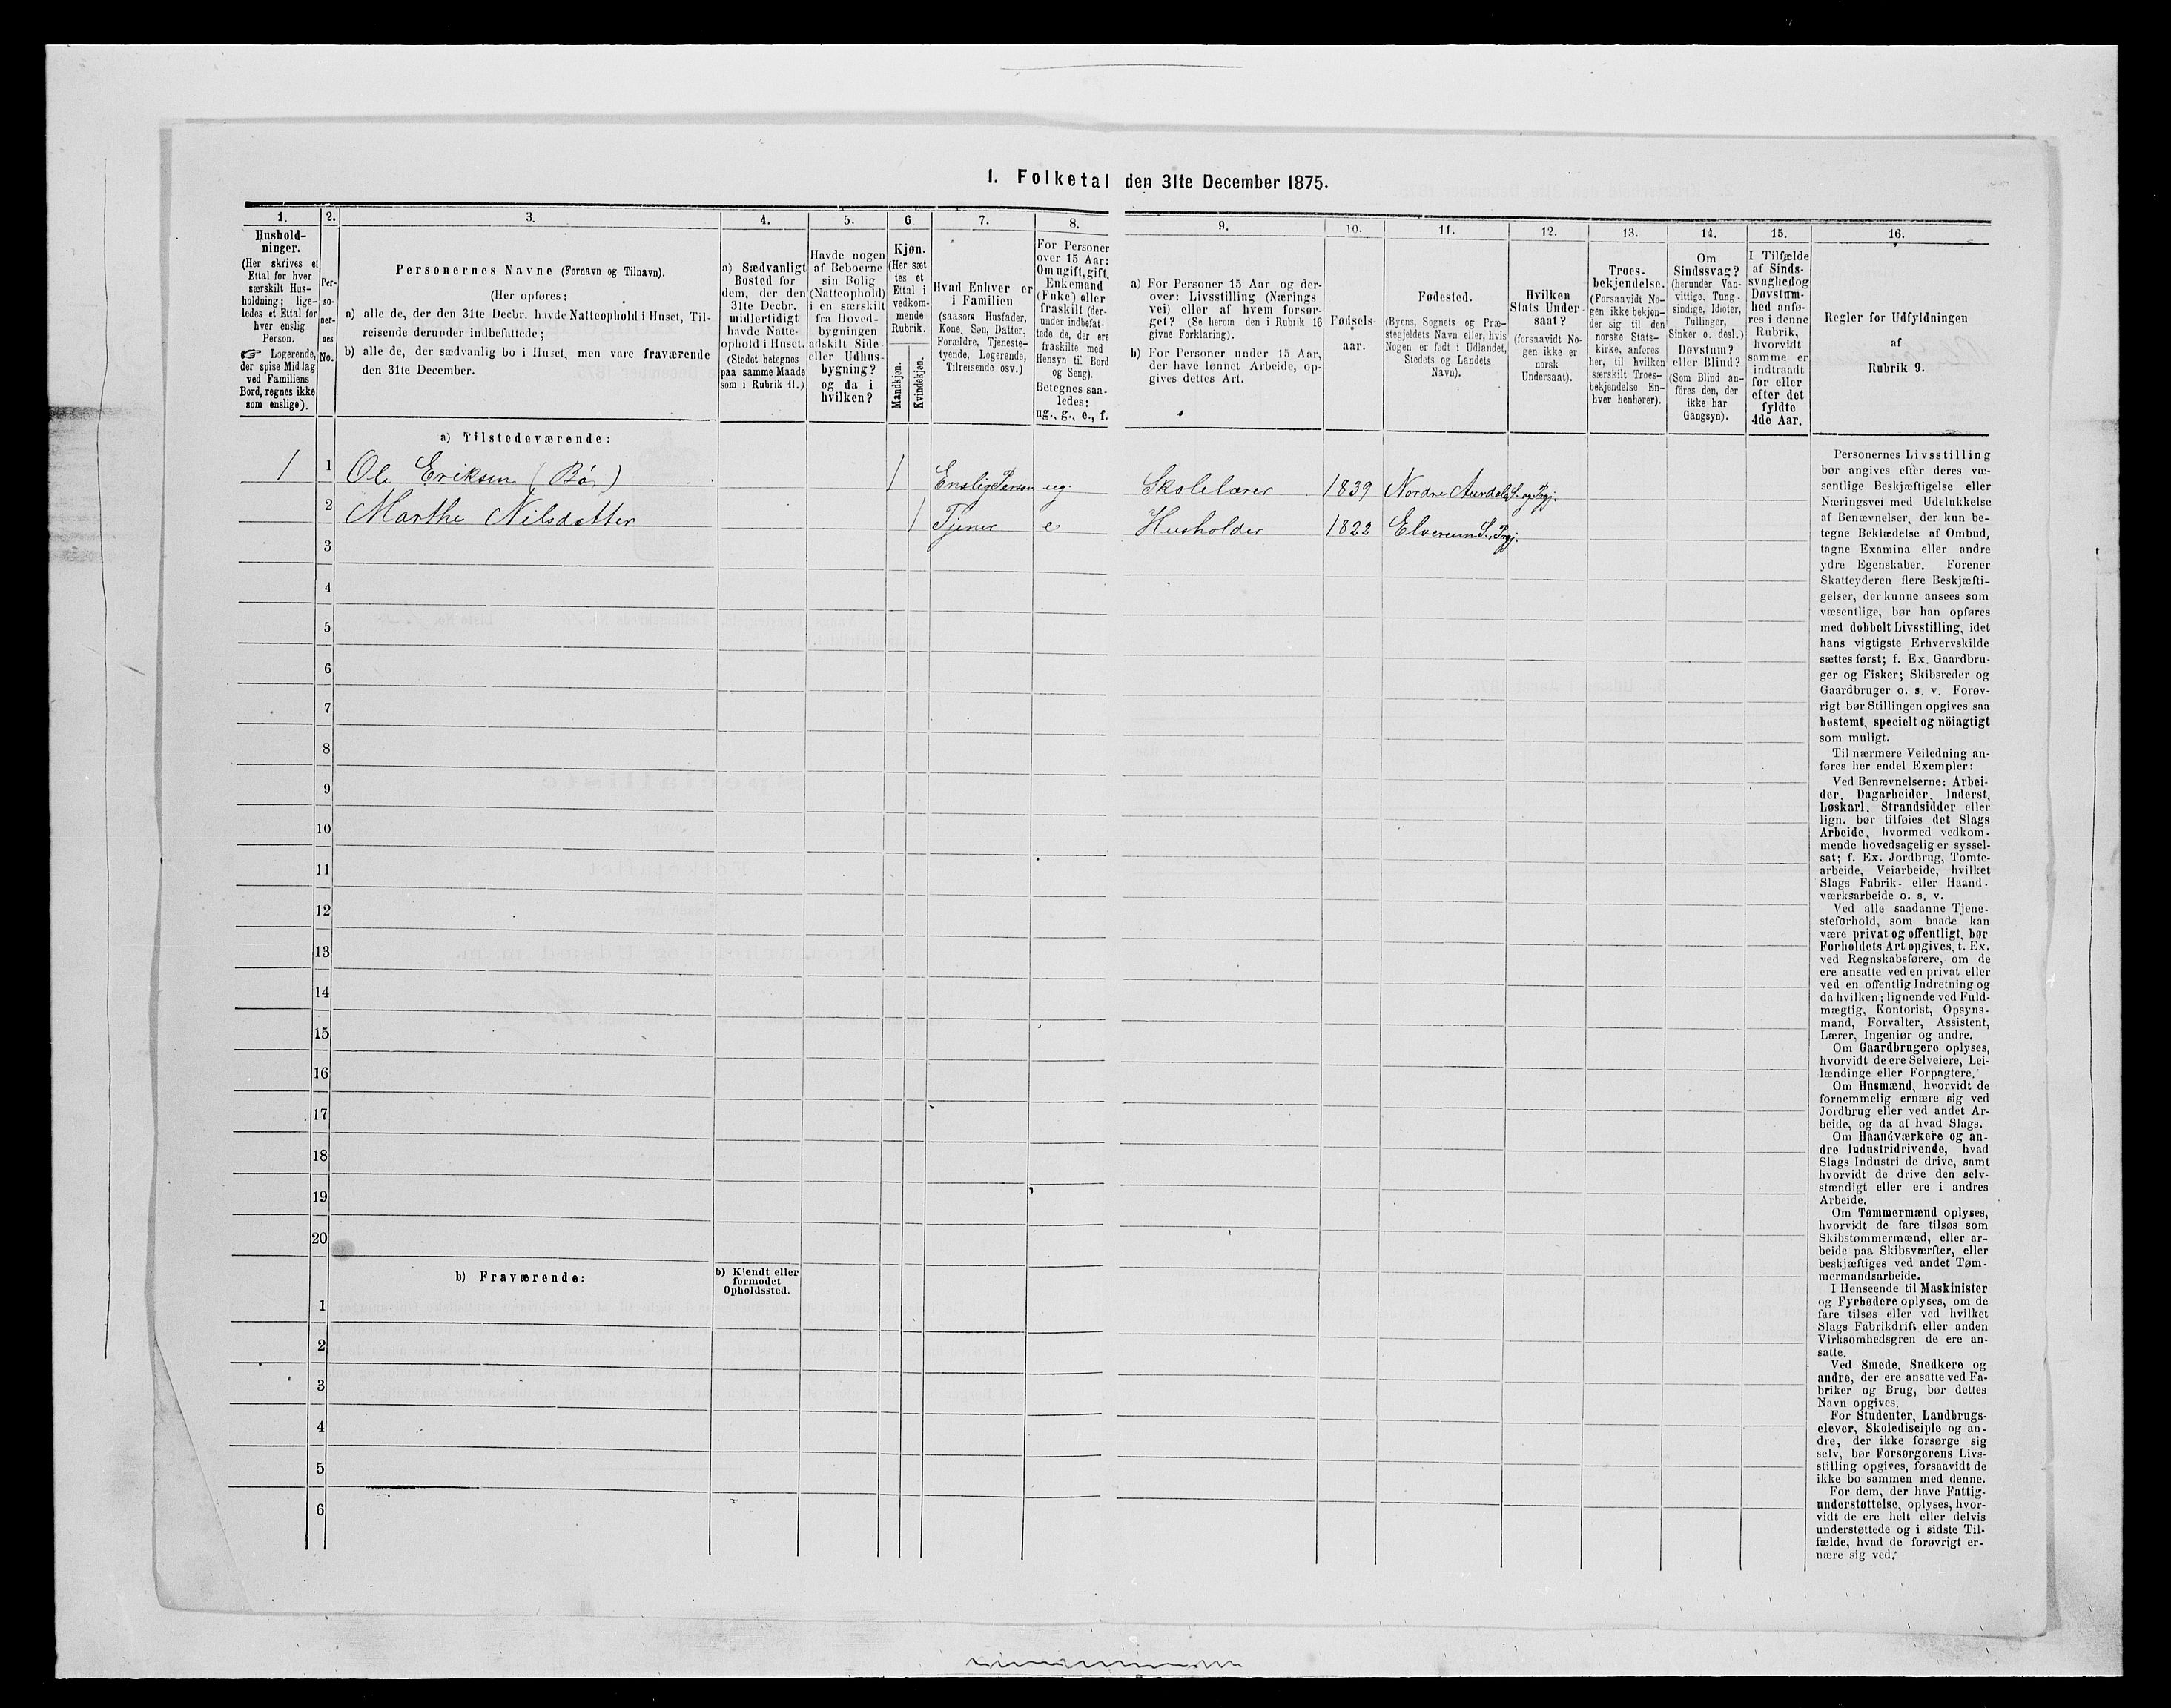 I. Folketal den 31te December 1875.
1.
Hushold-
ninger.
(Her skrives et
Ettal for hver
særskilt Hus-
holdning; lige-
ledes et Ettal for
hver enslig
Person.
☞ Logerende,
der spise Middag
ved Familiens
Bord, regnes ikke
som enslige).
2.
Per-
so-
ner-
nes
No.
3.
Personernes Navne (Fornavn og Tilnavn).
(Her opføres:
a) alle de, der den 31te Decbr. havde Natteophold i Huset, Til-
reisende derunder indbefattede;
b) alle de, der sædvanlig bo i Huset, men vare fraværende
den 31te December.
4.
a) Sædvanligt
Bosted for
dem, der den
31te Decbr.
midlertidigt
havde Natte-
ophold i Huset.
(Stedet betegnes
paa samme Maade
som i Rubrik 11.)
5.
Havde nogen
af Beboerne
sin Bolig
(Natteophold)
i en særskilt
fra Hoved-
bygningen
adskilt Side-
eller Udhus-
bygning?
og da i
hvilken?
6.
Kjøn.
(Her sæt
tes et
Ettal i
vedkom-
mende
Rubrik.
Mandkjøn.
Kvindekjøn.
7.
Hvad Enhver er
i Familien
(saasom Husfader,
Kone, Søn, Datter,
Forældre, Tjeneste-
tyende, Logerende,
Tilreisende osv.)
8.
For Personer
over 15 Aar:
Om ugift, gift,
Enkemand
(Enke) eller
fraskilt (der-
under indbefat-
tede de, der ere
fraskilte med
Hensyn til Bord
og Seng).
Betegnes saa-
ledes:
ug., g., e., f.
9.
a) For Personer 15 Aar og der-
over: Livsstilling (Nærings
vei) eller af hvem forsør-
get? (Se herom den i Rubrik 16
givne Forklaring).
b) For Personer under 15 Aar,
der have lønnet Arbeide, op-
gives dettes Art.
10.
Fødsels-
aar.
11.
Fødested.
(Byens, Sognets og Præ-
stegjeldets Navn eller, hvis
Nogen er født i Udlandet,
Stedets og Landets
Navn).
12.
Hvilken
Stats Under-
saat?
(forsaavidt No-
gen ikke er
norsk
Undersaat).
13.
Troes-
bekjendelse.
(Forsaavidt No-
gen ikke bekjen-
der sig til den
norske Stats-
kirke, anføres
her, til hvilken
særskilt Troes-
bekjendelse En-
hver henhører).
14.
Om
Sindssvag?
(herunder Van-
vittige, Tung-
sindige, Idioter,
Tullinger,
Sinker o. desl.)
Døvstum?
eller Blind?
(Som Blind an-
føres den, der
ikke har
Gangsyn).
15.
I Tilfælde
af Sinds-
svaghed og
Døvstum-
hed anfø-
res i denne
Rubrik,
hvorvidt
samme er
indtraadt
før eller
efter det
fyldte
4de Aar.
16.
Regler for Udfyldningen
af
Rubrik 9.
a) Tilstedeværende:
1 1 Ole Eriksen (Bø) 1 Enslig Person ug. Skolelærer 1839 Nordre Aurdals S. og Prgj.
2 Marthe Nilsdatter 1 Tjener e Husholder 1822 Elverum S., Prgj.
3
4
5
6
7
8
9
10
11
12
13
14
15
16
17
18
19
20
b) Fraværende:
b) Kjendt eller
formodet
Opholdssted.
1
2
3
4
5
6
Personernes Livsstilling
bør angives efter deres væ-
sentlige Beskjæftigelse eller
Næringsvei med Udelukkelse
af Benævnelser, der kun be-
tegne Beklædelse af Ombud,
tagne Examina eller andre
ydre Egenskaber. Forener
Skatteyderen flere Beskjæfti-
gelser, der kunne ansees som
væsentlige, bør han opføres
med dobbelt Livsstilling, idet
hans vigtigste Erhvervskilde
sættes først; f. Ex. Gaardbru-
ger og Fisker; Skibsreder og
Gaardbruger o. s. v. Forøv-
rigt bør Stillingen opgives saa
bestemt, specielt og nöiagtigt
som muligt.
Til nærmere Veiledning an-
føres her endel Exempler:
Ved Benævnelserne: Arbei-
der, Dagarbeider, Inderst,
Løskarl, Strandsidder eller
lign. bør tilføies det Slags
Arbeide, hvormed vedkom-
mende hovedsagelig er syssel-
sat; f. Ex. Jordbrug, Tomte-
arbeide, Veiarbeide, hvilket
Slags Fabrik- eller Haand-
værksarbeide o. s. v.
Ved alle saadanne Tjene-
steforhold, som baade kan
være privat og offentligt, bør
Forholdets Art opgives, t. Ex.
ved Regnskabsførere, om de
ere ansatte ved en privat eller
ved en offentlig Indretning og
da hvilken; lignende ved Fuld-
mægtig, Kontorist, Opsyns-
mand, Forvalter, Assistent,
Lærer, Ingeniør og andre.
Om Gaardbrugere oplyses,
hvorvidt de ere Selveiere, Lei-
lændinge eller Forpagtere.
Om Husmænd, hvorvidt de
fornemmelig ernære sig ved
Jordbrug eller ved andet Ar-
beide, og da af hvad Slags.
Om Haandværkere og an-
dre Industridrivende, hvad
Slags Industri de drive, samt
hvorvidt de drive den selv-
stændigt eller ere i andres
Arbeide.
Om Tømmermænd oplyses,
hvorvidt de fare tilsøs som
Skibstømmermænd, eller ar-
beide paa Skibsværfter, eller
beskjæftiges ved andet Tøm-
mermandsarbeide.
I Henseende til Maskinister
og Fyrbødere oplyses, om de
fare tilsøs eller ved hvilket
Slags Fabrikdrift eller anden
Virksomhedsgren de ere an-
satte.
Ved Smede, Snedkere og
andre, der ere ansatte ved Fa-
briker og Brug, bør dettes
Navn opgives.
For Studenter, Landbrugs-
elever, Skoledisciple og an-
dre, der ikke forsørge sig
selv, bør Forsørgerens Livs-
stilling opgives, forsaavidt de
ikke bo sammen med denne.
For dem, der have Fattig-
understøttelse, oplyses, hvor-
vidt de ere helt eller delvis
understøttede og i sidste Til-
fælde, hvad de forøvrigt er-
nære sig ved.